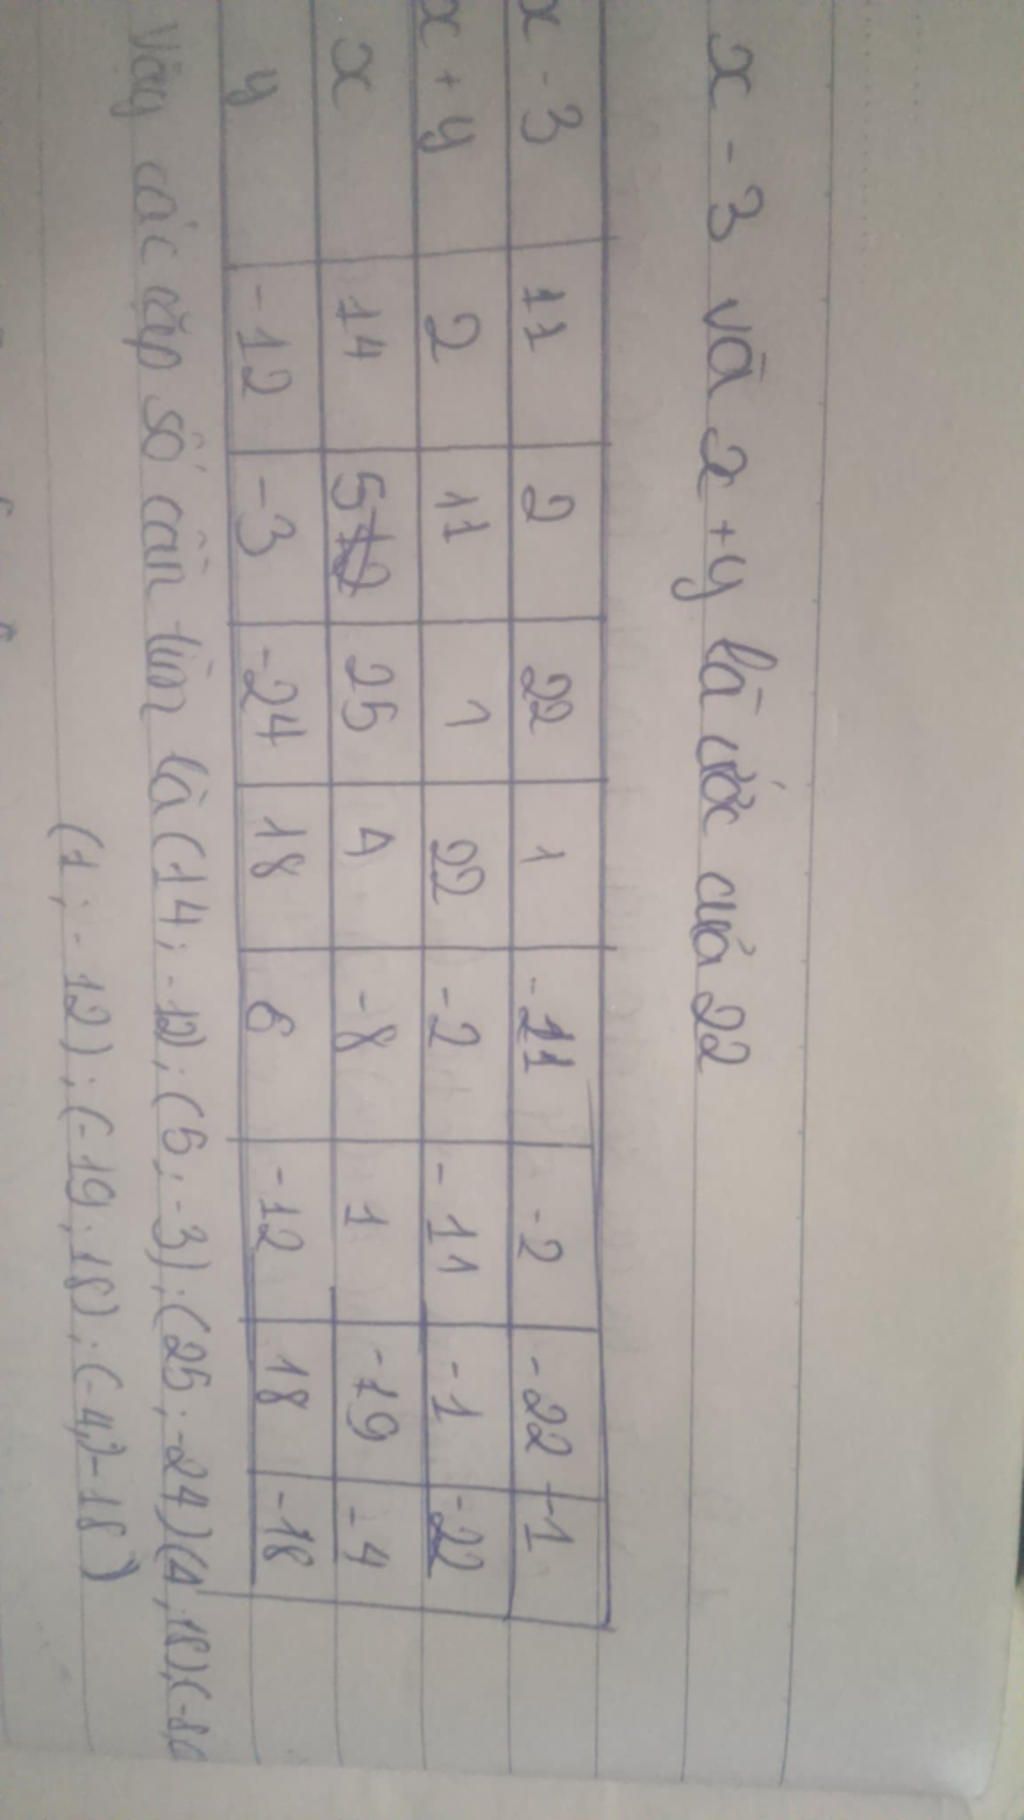 x - 3 và x + y là ước của 22
x - 3 11 2 22 1 -11 -2 -22 -1
x + y 2 11 1 22 -2 -11 -1 -22
x 14 5 25 4 -8 1 -19 -4
y -12 -3 -24 18 6 -12 18 -18
Vậy các cặp số cần tìm là (14; -12); (5; -3); (25; -24) (4; 18); (-8;
(1; -12); (-19; 18); (-4; -18)